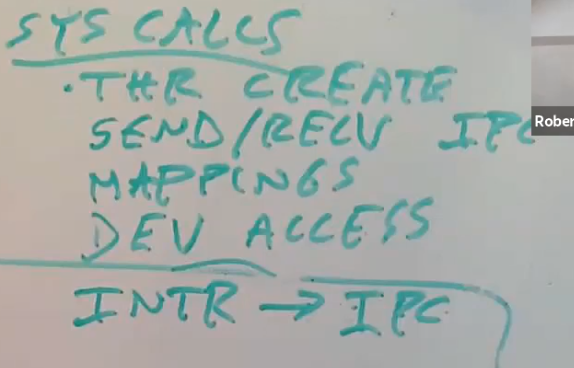 SYS CALLS
· THR CREATE
SEND/RECV IPC
MAPPINGS
DEV ACCESS
INTR → IPC
Rober